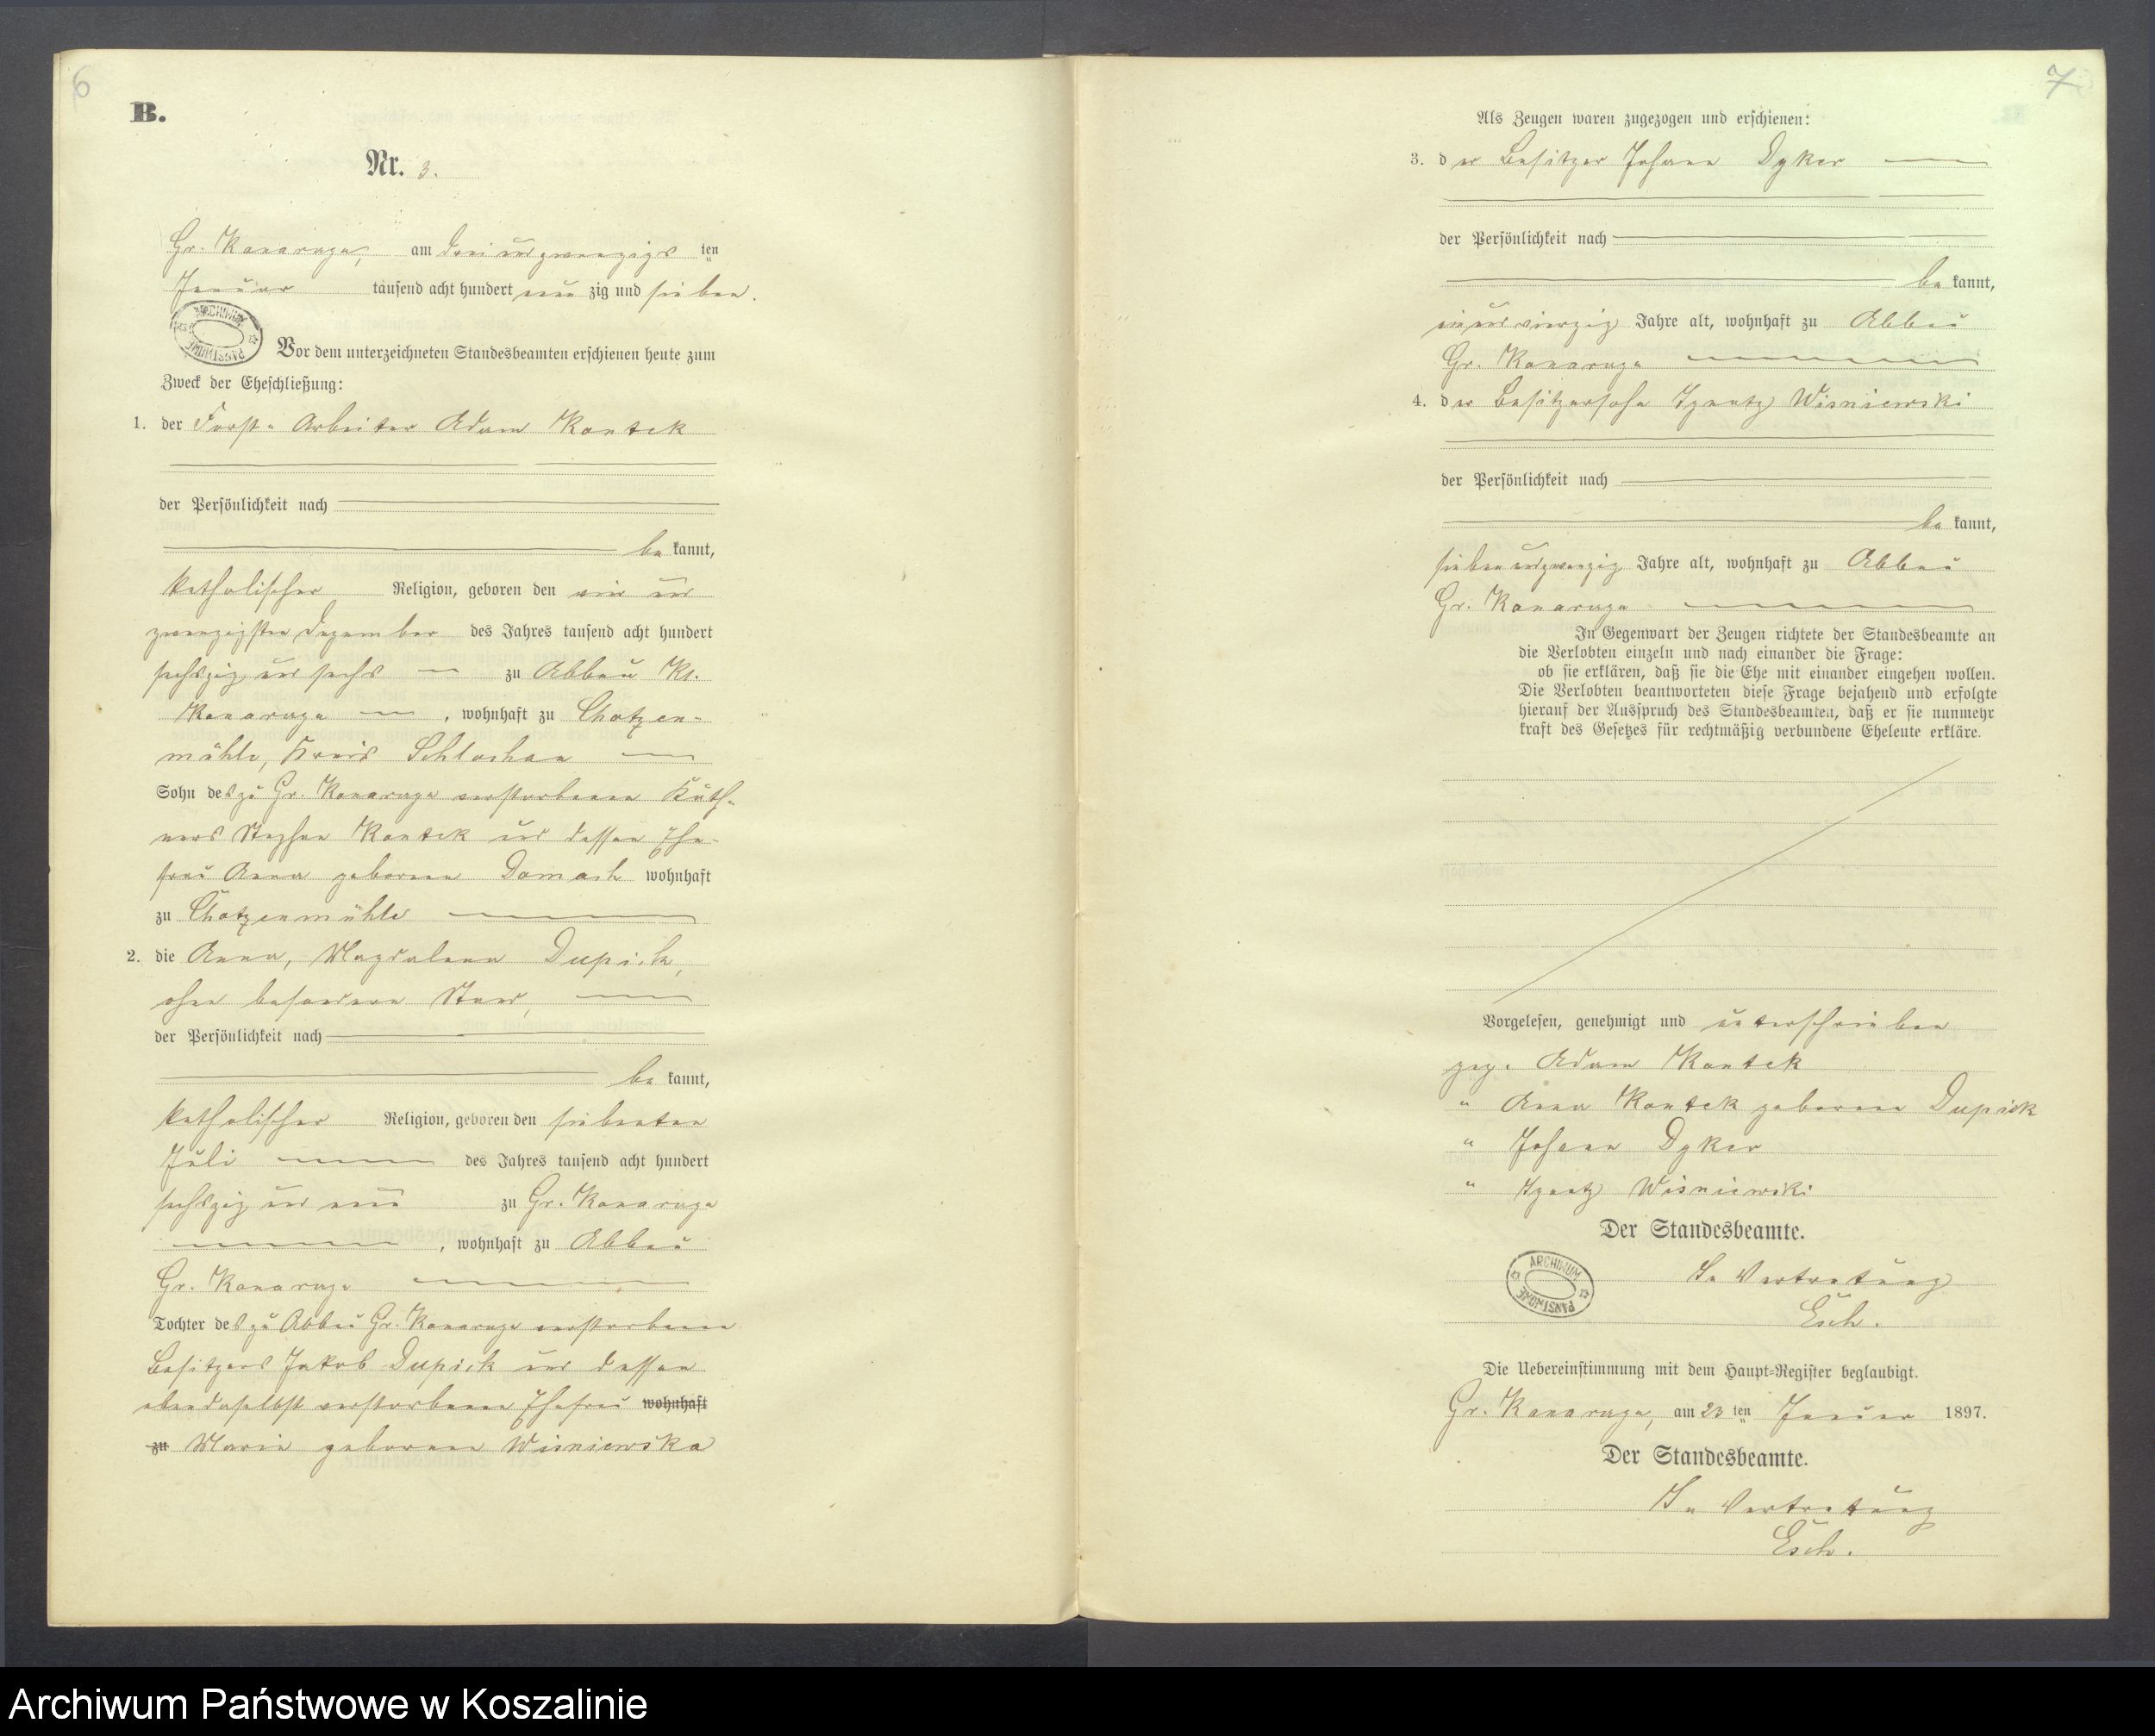 6
B.
Nr. 3.
Gr. Konarzyn, am drei und zwanzigs ten
Januar tausend acht hundert neun zig und sieben.
ARCHIWUM PAŃSTWOWE
Vor dem unterzeichneten Standesbeamten erschienen heute zum
Zweck der Eheschließung:
1. der Forst- Arbeiter Adam Kontek
der Persönlichkeit nach
be kannt,
katholischer Religion, geboren den vier und
zwanzigsten Dezember des Jahres tausend acht hundert
sechszig und sechs zu Abbau Kl.
Konarzyn, wohnhaft zu Chotzen-
mühle, Kreis Schlochau
Sohn des zu Gr. Konarzyn verstorbenen Käth-
ners Stephan Kontek und dessen Ehe-
frau Anna geborenen Domach wohnhaft
zu Chotzenmühle
2. die Anna, Magdalena Dupick,
ohne besonderen Stand,
der Persönlichkeit nach
be kannt,
katholischer Religion, geboren den siebenten
Juli des Jahres tausend acht hundert
sechszig und neun zu Gr. Konarzyn
, wohnhaft zu Abbau
Gr. Konarzyn
Tochter des zu Abbau Gr. Konarzyn verstorbenen
Besitzers Jakob Dupick und dessen
ebendaselbst verstorbenen Ehefrau wohnhaft
zu Marie geborenen Wisniewska
7
Als Zeugen waren zugezogen und erschienen:
3. der Besitzer Johann Dyker
der Persönlichkeit nach
be kannt,
einundvierzig Jahre alt, wohnhaft zu Abbau
Gr. Konarzyn
4. der Besitzersohn Ignatz Wisniewski
der Persönlichkeit nach
be kannt,
siebenundzwanzig Jahre alt, wohnhaft zu Abbau
Gr. Konarzyn
In Gegenwart der Zeugen richtete der Standesbeamte an
die Verlobten einzeln und nach einander die Frage:
ob sie erklären, daß sie die Ehe mit einander eingehen wollen.
Die Verlobten beantworteten diese Frage bejahend und erfolgte
hierauf der Ausspruch des Standesbeamten, daß er sie nunmehr
kraft des Gesetzes für rechtmäßig verbundene Eheleute erkläre.
Vorgelesen, genehmigt und unterschrieben
gez. Adam Kontek
" Anna Kontek geborene Dupick
" Johann Dyker
" Ignatz Wisniewski
Der Standesbeamte.
In Vertretung
ARCHIWUM PAŃSTWOWE
Esch.
Die Uebereinstimmung mit dem Haupt-Register beglaubigt.
Gr. Konarzyn, am 23 ten Januar 1897.
Der Standesbeamte.
In Vertretung
Esch.
Archiwum Państwowe w Koszalinie